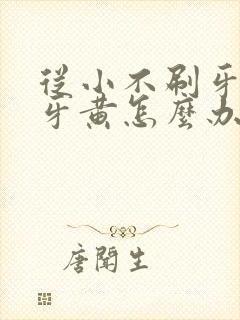 從小不刷牙
牙黃怎麼办
唐聞生